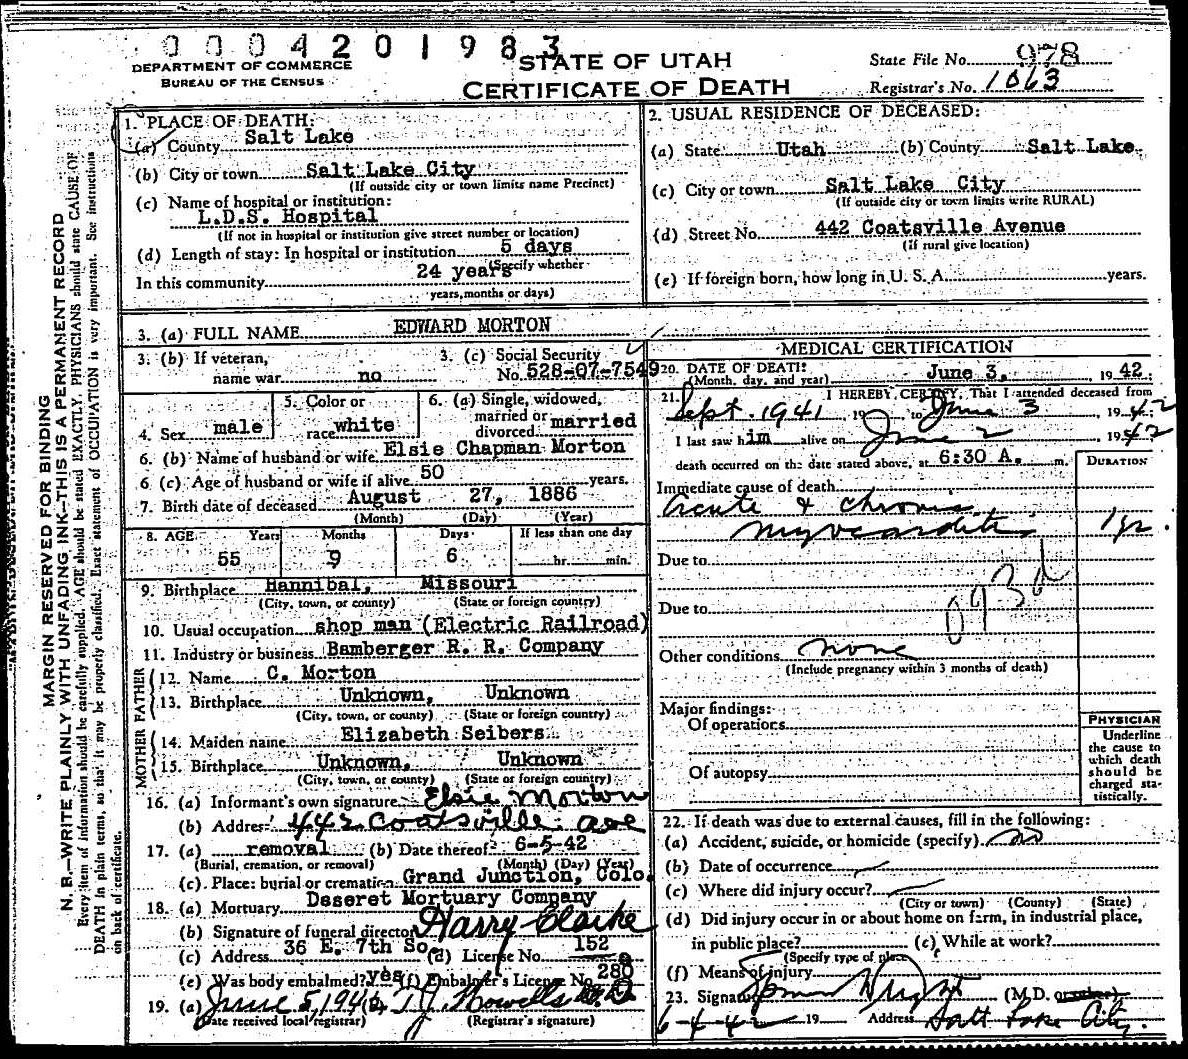 0004201983
DEPARTMENT OF COMMERCE
BUREAU OF THE CENSUS
STATE OF UTAH
CERTIFICATE OF DEATH
State File No. 978
Registrar's No. 1063
MARGIN RESERVED FOR BINDING
N. B.—WRITE PLAINLY WITH UNFADING INK—THIS IS A PERMANENT RECORD
Every item of information should be carefully supplied. AGE should be stated EXACTLY. PHYSICIANS should state CAUSE OF
DEATH in plain terms, so that it may be properly classified. Exact statement of OCCUPATION is very important. See instructions
on back of certificate.
1. PLACE OF DEATH:
(a) County Salt Lake
(b) City or town Salt Lake City
(If outside city or town limits name Precinct)
(c) Name of hospital or institution:
L.D.S. Hospital
(If not in hospital or institution give street number or location)
(d) Length of stay: In hospital or institution 5 days
(Specify whether
In this community 24 years
years, months or days)
2. USUAL RESIDENCE OF DECEASED:
(a) State Utah (b) County Salt Lake
(c) City or town Salt Lake City
(If outside city or town limits write RURAL)
(d) Street No. 442 Coatsville Avenue
(If rural give location)
(e) If foreign born, how long in U. S. A. years.
3. (a) FULL NAME EDWARD MORTON
3. (b) If veteran, name war no
3. (c) Social Security No. 528-07-7549
4. Sex male
5. Color or race white
6. (a) Single, widowed, married or divorced married
6. (b) Name of husband or wife Elsie Chapman Morton
6 (c) Age of husband or wife if alive 50 years.
7. Birth date of deceased August 27, 1886
(Month) (Day) (Year)
8. AGE Years Months Days If less than one day
55 9 6 hr. min.
9. Birthplace Hannibal, Missouri
(City, town, or county) (State or foreign country)
10. Usual occupation shop man (Electric Railroad)
11. Industry or business Bamberger R. R. Company
FATHER
12. Name C. Morton
13. Birthplace Unknown, Unknown
(City, town, or county) (State or foreign country)
MOTHER
14. Maiden name Elizabeth Seibers
15. Birthplace Unknown, Unknown
(City, town, or county) (State or foreign country)
16. (a) Informant's own signature Elsie Morton
(b) Address 442 Coatsville Ave
17. (a) removal (b) Date thereof 6-5-42
(Burial, cremation, or removal) (Month) (Day) (Year)
(c) Place: burial or cremation Grand Junction, Colo.
18. (a) Mortuary Deseret Mortuary Company
(b) Signature of funeral director Harry Clarke
(c) Address 36 E. 7th So. (d) License No. 152
(e) Was body embalmed? yes (f) Embalmer's License No. 280
19. (a) June 5, 1942 T. J. Howells M.D.
(Date received local registrar) (Registrar's signature)
MEDICAL CERTIFICATION
20. DATE OF DEATH: June 3, 1942
(Month, day, and year)
21. I HEREBY CERTIFY, That I attended deceased from
Sept. 1941 19 to June 3 1942
I last saw him alive on June 2, 1942
death occurred on the date stated above, at 6:30 A. m.
DURATION
Immediate cause of death
Acute & chronic
myocarditis 1 yr.
Due to
Due to
093d
Other conditions none
(Include pregnancy within 3 months of death)
Major findings:
Of operations
Of autopsy
PHYSICIAN
Underline
the cause to
which death
should be
charged sta-
tistically.
22. If death was due to external causes, fill in the following:
(a) Accident, suicide, or homicide (specify) no
(b) Date of occurrence
(c) Where did injury occur?
(City or town) (County) (State)
(d) Did injury occur in or about home on farm, in industrial place,
in public place? (e) While at work?
(Specify type of place)
(f) Means of injury
23. Signature Wright (M.D. or other)
6-4-42 19 Address Salt Lake City.